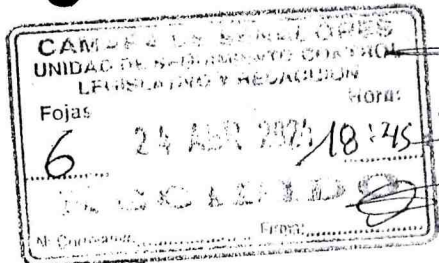 CAMARA DE SENADORES
UNIDAD DE SEGUIMIENTO CONTROL
LEGISLATIVO Y REDACCION
Fojas Hora:
6 24 ABR 2024 18:45
RECIBIDO
Firma: